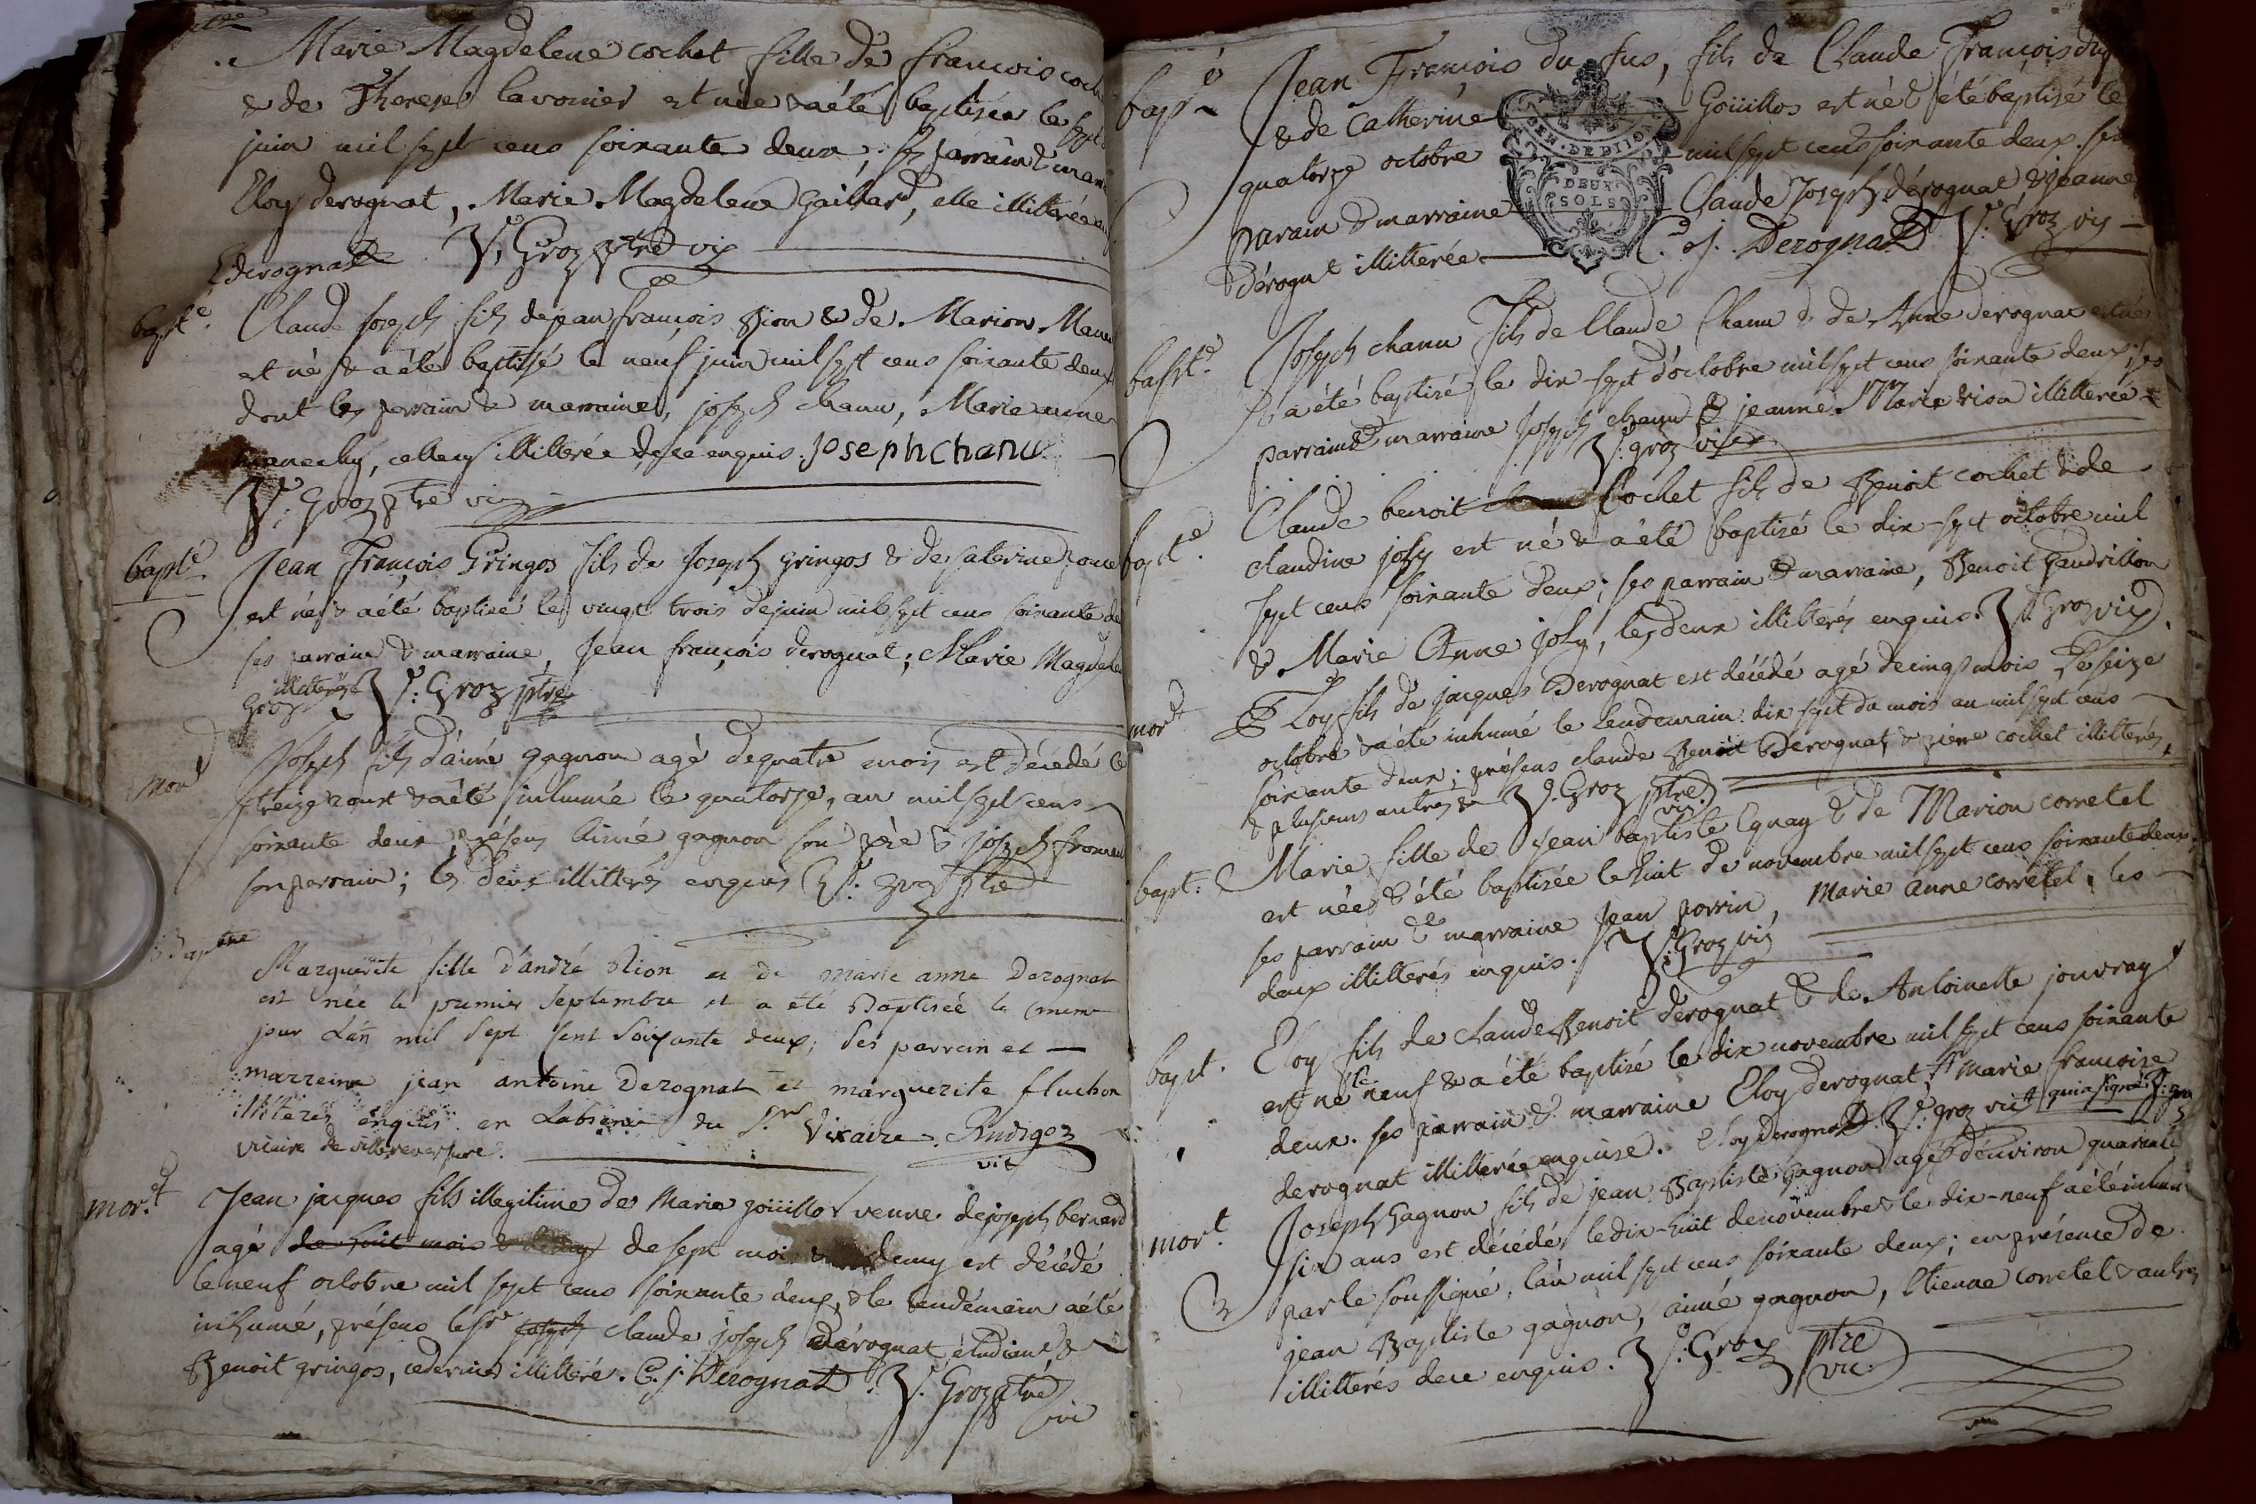 Marie Magdelene cochet fille de francois
& de Therese lavonier est née & a été baptisée le sept
juin mil sept cens soixante deux, ses parrain &
Eloy derognat, Marie Magdelene Gaillard, elle illitérée
E derognat J: Groz ptre vic
bapt.e
Claude Joseph fils de jean françois Pion & de Marion
est né & a été baptisé le neuf juin mil sept cens soixante deux
dont les parrain & marraine, joseph chanu, Marie anne
illitérée de ce enquis. Joseph Chanu
J: Groz ptre vic
bapt.e
Jean François Gringos fils de Joseph gringos & de
est né & a été baptisé le vingt trois de juin mil sept cens soixante
ses parrain & marraine, Jean françois derognat; Marie
illiterés J: Groz ptre
mort
Joseph fils d'aimé gagnon agé de quatre mois est décédé le
treize aout & a été inhumé le quatorze, an mil sept cens
soixante deux, présens Aimé gagnon son père & joseph
son parrain; les deux illitterés enquis J: groz ptre
Marguerite fille d'andré Pion et de marie anne Derognat
est née le premier septembre et a été Baptisée le meme
jour L'an mil sept sent soixante deux; ses parrein et
marreine jean antoine Derognat et marguerite fluchon
illiteres enquis en Labsence du Sr Vicaire.
vicaire de villereversure. vic
mort
Jean jacques fils illegitime de Marie goüillos veuve de joseph bernard
agé de huit mois de sept mois & demy est décédé
le neuf octobre mil sept cens soixante deux, & le lendemain a été
inhumé, présens le sr joseph claude joseph derognat étudiant &
Benoit gringos, ce dernier illitteré. C. j. Derognat. J: Groz ptre
vic
bapt.é
Jean François du fus, fils de Claude François
& de Catherine Goüillos est né & été baptisé le
quatorze octobre mil sept cens soixante deux. ses
parrain & marraine Claude Joseph dérognat & jeanne
dérognat illitterée C. J. Derognat J: Groz vic
GEN. DE DIJON
DEUX
SOLS
bapt.é
Joseph chanu fils de Claude Chanu & de Anne derognat est né
& a été baptisé le dix sept d'octobre mil sept cens soixante deux; ses
parrain & marraine Joseph chanu & jeanne Marie illitterée
J: groz vic
bapt.é
Claude benoit Cochet fils de Benoit cochet & de
claudine joly est né & a été baptisé le dix-sept octobre mil
sept cens soixante deux; ses parrain & marraine, Benoit Gaudrillon
& Marie Anne joly, les deux illitterés enquis. J: Groz vic
mort
Eloy fils de jacques Derognat est décédé agé de cinq mois Le seize
octobre & a été inhumé le lendemain dix sept du mois an mil sept cens
soixante deux; présens claude Benoit Derognat & piere cochet illitterés,
& plusieurs autres J: Groz ptre
vic.
bapt:
Marie fille de jean baptiste Eguay & de Marion corretel
est née & été baptisée le huit de novembre mil sept cens soixante deux,
ses parrain & marraine Jean perrin, Marie Anne corretel, les
deux illitterés enquis. J: Groz vic
bapt.
Eloy fils de claude Benoit derognat & de Antoinette jouvray
est né le neuf & a été baptisé le dix novembre mil sept cens soixante
deux. ses parrain & marraine Eloy derognat, Marie francoise
derognat illitterée enquise. Eloy derognat J: groz vic qui a signé
mort
Joseph Gagnon fils de jean Baptiste gagnon agé d'environ quarante
six ans est décédé le dix-huit de novembre & le dix-neuf a été inhumé
par le soussigné, l'an mil sept cens soixante deux; en présence de
jean Baptiste gagnon, aimé gagnon, Etienne corretel & autres
illitterés de ce enquis. J: Groz ptre
vic.